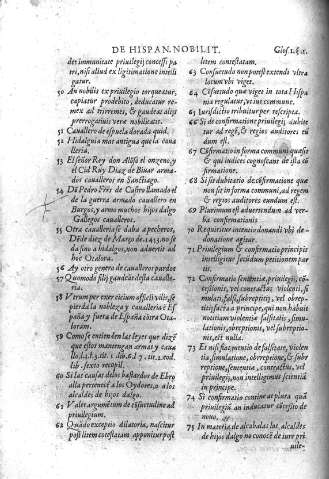 DE HISPAN. NOBILIT.
Glos. I. & II.
des immunitate privilegij concessi pa
tri, nisi alius ex legitimatione intelli
gatur.
50 An nobilis ex privilegio torqueatur,
capiatur pro debito, deducatur re-
mex ad triremes, & gaudeat alijs
prerrogativis vere nobilitatis.
51 Cavallero de espuela dorada quid.
52 Hidalguia mas antigua que la cava
lleria.
53 El señor Rey don Alõso el onzeno, y
el Cid Ruy Diaz de Bivar arma-
dos cavalleros en Sanctiago.
54 Dõ Pedro Frẽs de Castro llamado el
de la guerra armado cavallero en
Burgos, y a mas muchos hijos dalgo
Gallegos cavalleros.
55 Otra cavalleria se dava a pecheros,
De de diez de Março de 1413. no se
da sino a hidalgos, non advertit ad
hoc Otalora.
56 Ay otro genero de cavalleros pardos
57 Quomodo filij gaudeãt desta cavalle
ria.
58 Utrum per exercitium
pierda la nobleza y cavalleria è Es
paña y fuera de España cõtra Ota-
loram.
59 Como se entienden las leyes que dizẽ
que estos mantengan armas y cava
llo
lib. sexto recopil.
60 Si las causas delos bastardos de Ebro
alla pertenecẽ a los Oydores, a los
alcaldes de hijos dalgo.
61 Valet argumẽtum de cõsuetudine ad
privilegium.
62 Quãdo exceptio dilatoria, nascitur
post litem contestatam apponitur post
litem contestatam.
63 Consuetudo non potest extendi ultra
locum ubi viget.
64 Cõsuetudo quæ viget in tota Hispa
nia regulatur, ut ius commune.
65 Ius redditus tributi per se
66 Si de confirmatione privilegij dubite
tur ad regẽ, & regios auditores eũ
dum est.
67 Cõfirmatio in forma communi quæ sit
& qui iudices cognoscant de illa cõ
firmatione.
68 Si sit dubitatio de cõfirmatione quæ
non sit in forma communi, ad regem
& regios auditores eundum est.
69 Plurimum est advertendum ad ver-
ba confirmationis
70 Requiritur intentio donandi vbi do-
natione agitur.
71 Privilegium & confirmatio principis
intelligitur secundum petitionem par
tis.
72 Confirmatio sententiæ, privilegij, cõ-
ceptionis, vel contractus violenti, si
mulati, falsi, subreptitij, vel obrep-
titij facta a principe, qui non habuit
notitiam violentiæ falsitatis, simu-
lationis, obreptionis, vel subreptio-
nis, est nulla.
73 Et nisi fiat mentio de falsitate, violen
tia, simulatione, obreptione, & sub-
reptione, sententiæ, contractus, vel
privilegij, non intelligimus scientiã
in principe.
74 Si confirmatio contineat plura quã
privilegiũ an inducatur concessio de
novo.
75 In materia de alcabalas los alcaldes
de hijos dalgo no conocẽ de iure pri
uile-